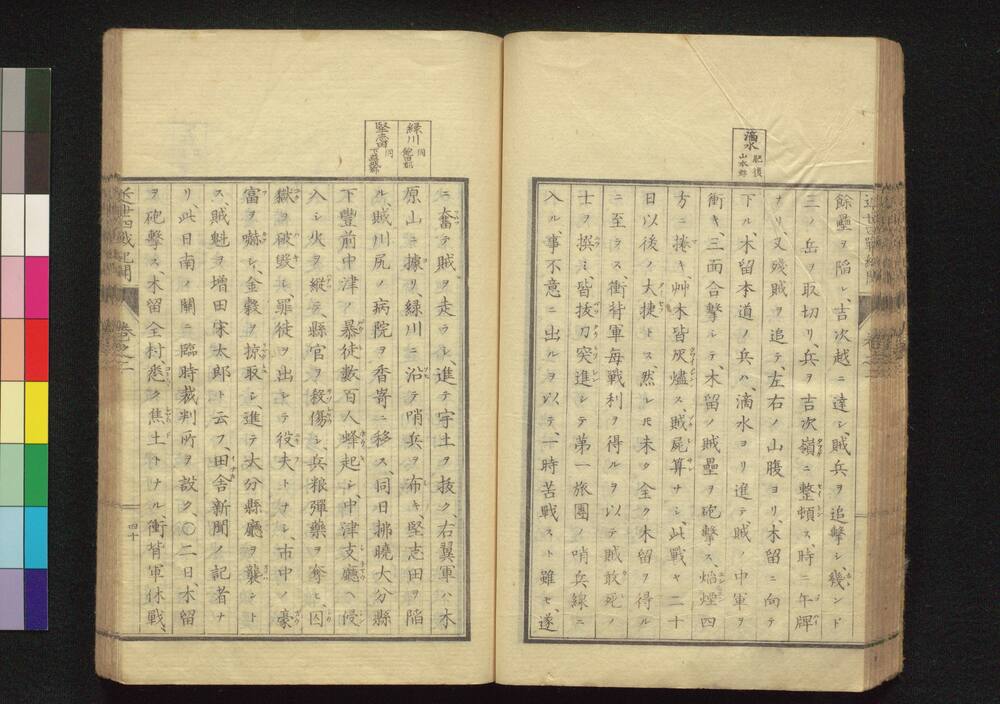 滴水 肥後山本郡
餘壘ヲ陥レ、吉次越ニ達シ、賊兵ヲ追撃シ、幾ンド
三ノ岳ヲ取切リ、兵ヲ吉次嶺ニ整頓ス、時ニ午牌
ナリ、又殘賊ヲ追テ、左右ノ山腹ヨリ、木留ニ向テ
下ル、木留本道ノ兵ハ、滴水ヨリ進テ賊ノ中軍ヲ
衝キ、三面合撃シテ、木留ノ賊壘ヲ砲撃ス、焔煙四
方ニ掩キ、艸木皆灰燼ス、賊屍算ナシ、此戰ヤ二十
日以後ノ大捷トス、然レ𪜈未タ全ク木留ヲ得ル
ニ至ラス、衝背軍每戰利ヲ得ルヲ以テ賊敢死ノ
士ヲ撰ミ、皆抜刀突進シテ第一旅團ノ哨兵線ニ
入ル、事不意ニ出ルヲ以テ、一時苦戰スト雖モ、遂
緑川 仝 飽田郡
堅志田 仝 下益城郡
ニ奮テ賊ヲ走ラシ、進テ宇土ヲ抜ク、右翼軍ハ木
原山ニ據リ、緑川ニ沿テ哨兵ヲ布キ、堅志田ヲ陥
ル、賊川尻ノ病院ヲ香寄ニ移ス、同日拂曉大分縣
下豐前中津ノ暴徒數百人蜂起シ、中津支廳ヘ侵
入シ火ヲ縱テ、縣官ヲ殺傷シ、兵粮彈藥ヲ奪ヒ、囚
獄ヲ破毀シ、罪徒ヲ出シテ役夫トナシ、市中ノ豪
富ヲ嚇シ、金穀ヲ掠取シ、進テ大分縣廳ヲ襲ントス
ス、賊魁ヲ增田宋太郎ト云フ、田舎新聞ノ記者ナ
リ、此日南ノ關ニ臨時裁判所ヲ設ク、〇二日木留
ヲ砲撃ス、木留全村、悉ク焦土トナル、衝背軍休戰、
四十